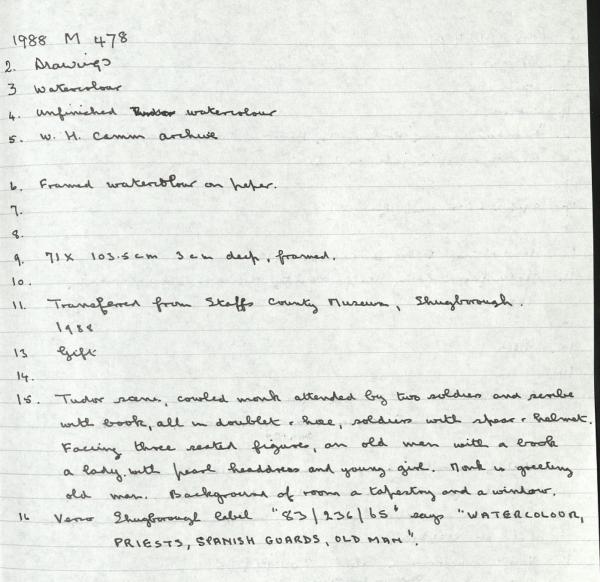 1988 M 478
2. Drawings
3 Watercolour
4. Unfinished Tudor watercolour
5. W. H. Camm archive
6. Framed watercolour on paper.
7.
8.
9. 71 x 103.5 cm 3 cm deep, framed.
10.
11. Transferred from Staffs County Museum, Shugborough.
1988
13 Gift
14.
15. Tudor scene, cowled monk attended by two soldiers and scribe
with book, all in doublet + hose, soldiers with spear + helmet.
Facing three seated figures, an old man with a book
a lady with pearl headdress and young girl. Monk is greeting
old man. Background of room a tapestry and a window.
16 Verso Shugborough label "83/236/65" says "WATERCOLOUR,
PRIESTS, SPANISH GUARDS, OLD MAN".